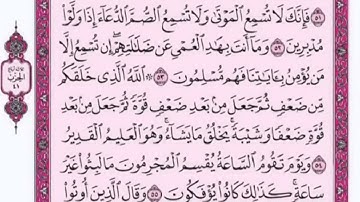 ٥١ فَإِنَّكَ لَا تُسْمِعُ الْمَوْتَىٰ وَلَا تُسْمِعُ الصُّمَّ الدُّعَاءَ إِذَا وَلَّوْا
مُدْبِرِينَ ٥٢ وَمَا أَنتَ بِهَٰدِ الْعُمْيِ عَن ضَلَٰلَتِهِمْ إِن تُسْمِعُ إِلَّا
مَن يُؤْمِنُ بِـَٔايَٰتِنَا فَهُم مُّسْلِمُونَ ٥٣ ۞ اللَّهُ الَّذِي خَلَقَكُم
مِّن ضَعْفٍ ثُمَّ جَعَلَ مِن بَعْدِ ضَعْفٍ قُوَّةً ثُمَّ جَعَلَ مِن بَعْدِ
قُوَّةٍ ضَعْفًا وَشَيْبَةً يَخْلُقُ مَا يَشَاءُ وَهُوَ الْعَلِيمُ الْقَدِيرُ
٥٤ وَيَوْمَ تَقُومُ السَّاعَةُ يُقْسِمُ الْمُجْرِمُونَ مَا لَبِثُوا غَيْرَ
سَاعَةٍ كَذَٰلِكَ كَانُوا يُؤْفَكُونَ ٥٥ وَقَالَ الَّذِينَ أُوتُوا
الحزب
٤١